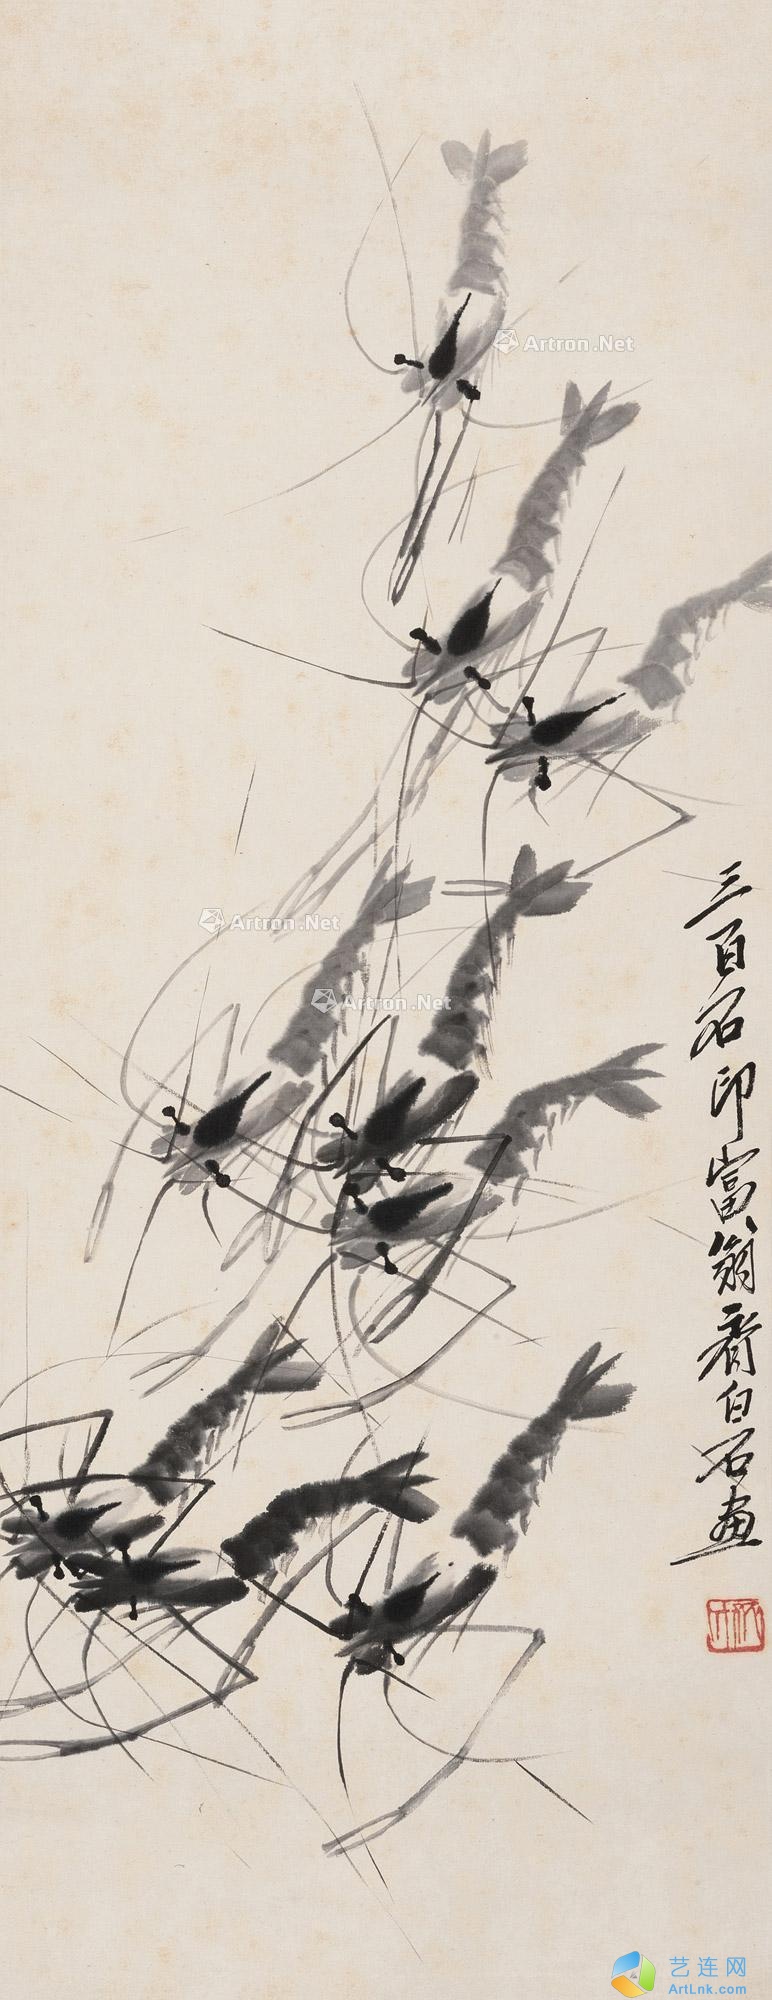 三百石印富翁齊白石画
Artron.Net
Artron.Net
Artron.Net
艺连网
ArtLnk.com